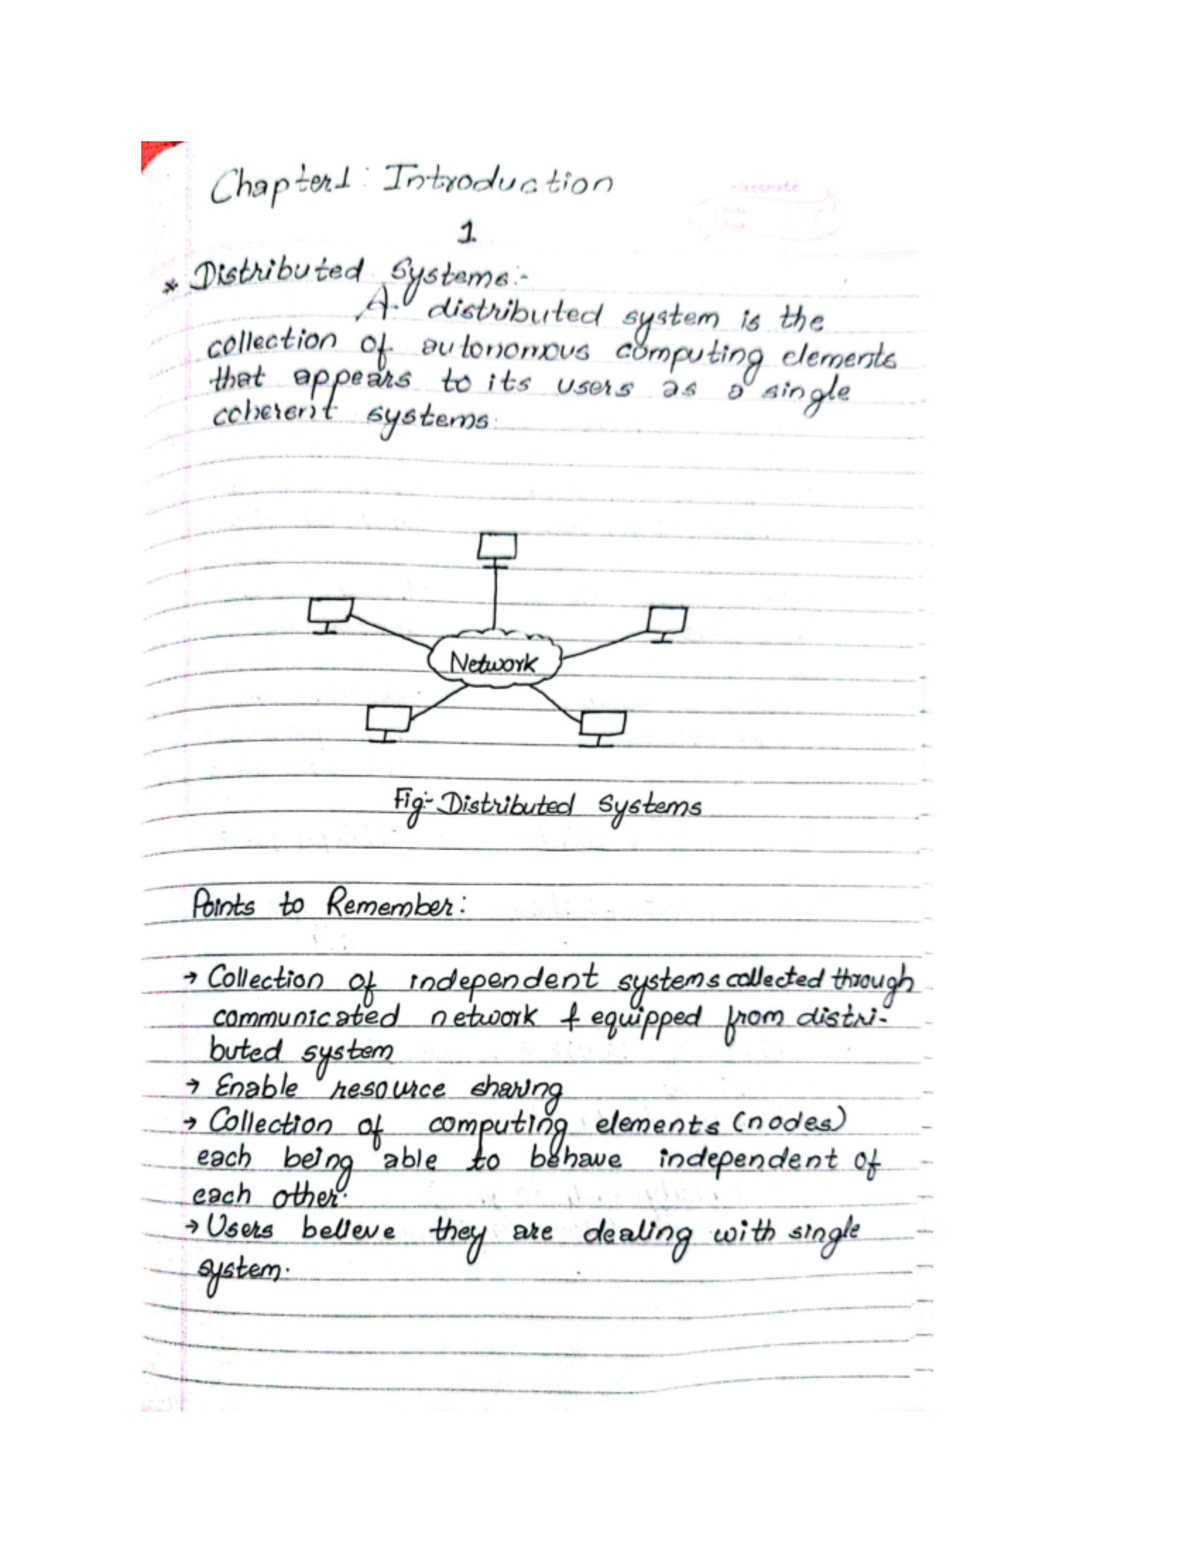 Chapter1: Introduction
classmate
1
* Distributed Systems:-
A distributed system is the
collection of autonomous computing elements
that appears to its users as a single
coherent systems.
Network
Fig:- Distributed Systems
Points to Remember:
→ Collection of independent systems collected through
communicated network & equipped from distri-
buted system
→ Enable resource sharing
→ Collection of computing elements (nodes)
each being able to behave independent of
each other.
→ Users believe they are dealing with single
system.